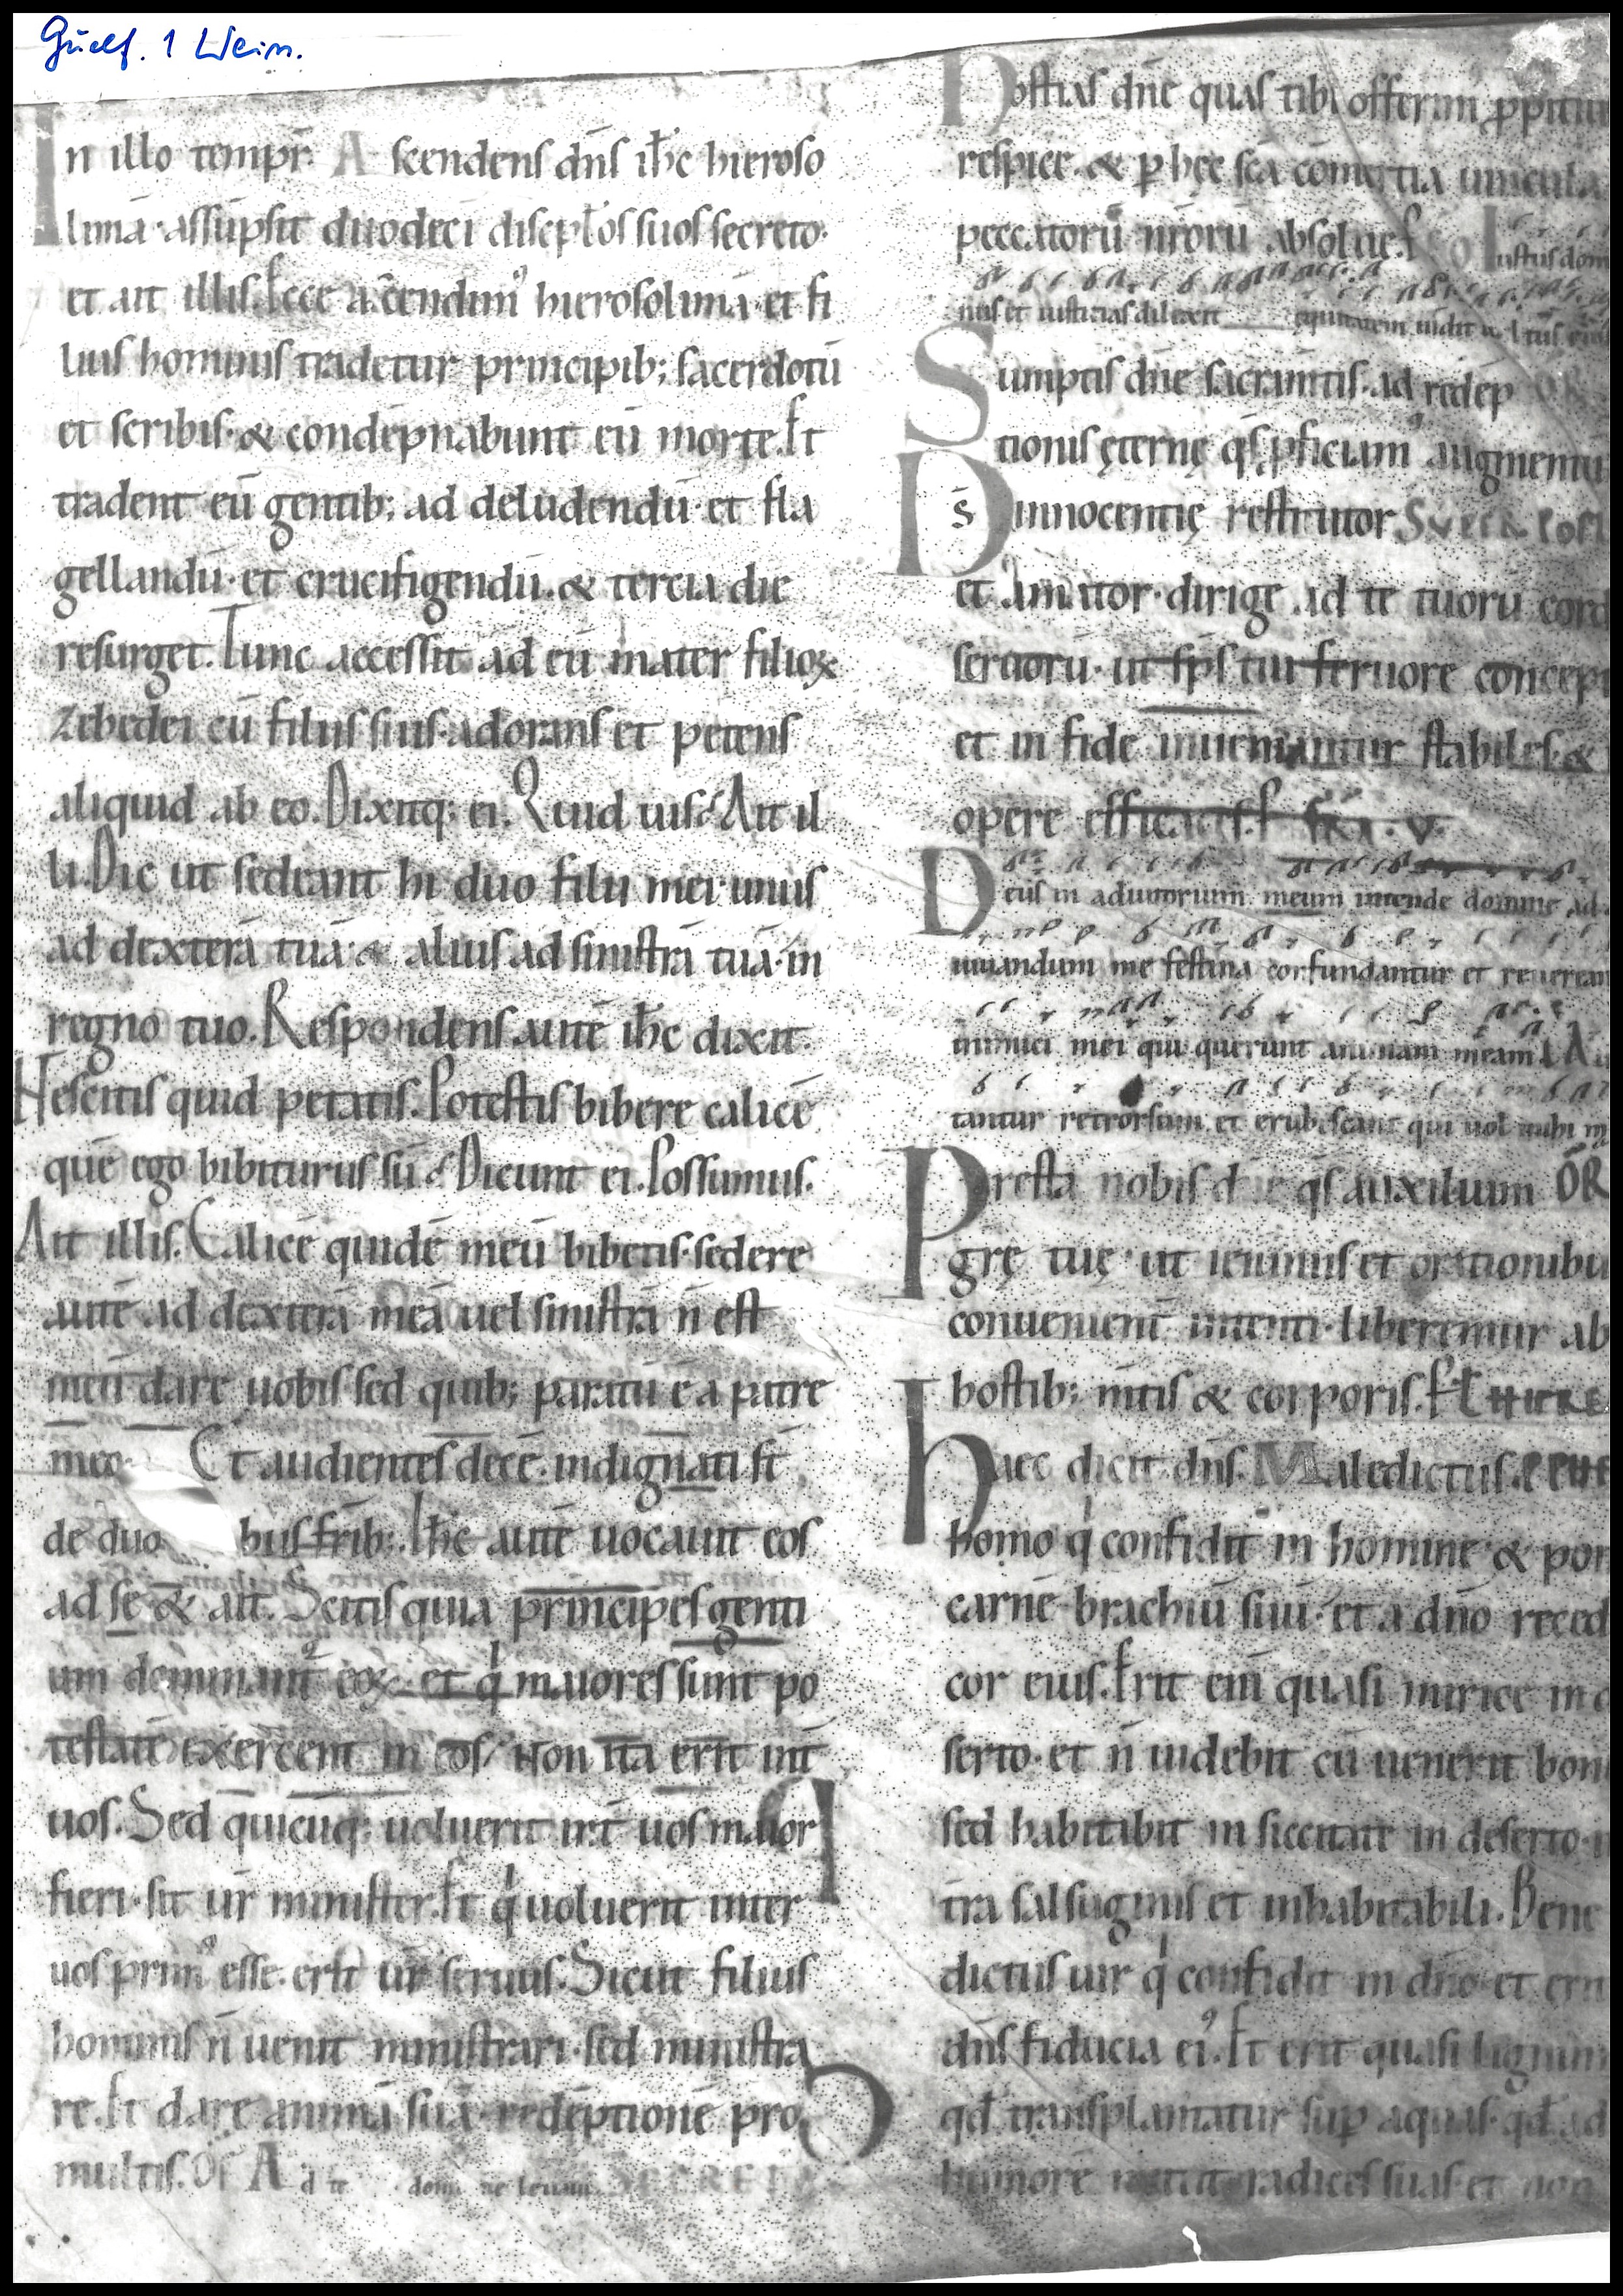 Guelf. 1 Weim.
In illo tempr̄. Ascendens dn̄s ih̄c hieroso
limā·assūpsit duodecī discipl̄os suos secreto·
et ait illis. Ecce ascendim᷒ hierosolimā·et fi
lius hominis tradetur principib; sacerdotū
et scribis·& condēpnabunt eū morte. Et
tradent eū gentib; ad deludendū·et fla
gellandū·et crucifigendū·& tercia die
resurget. Tunc accessit ad eū mater filioꝝ
zebedei cū filiis suis·adorans et petens
aliquid ab eo. Dixitq; ei. Quid uis? Ait il
li. Dic ut sedeant hi duo filii mei·unus
ad dexterā tuā·& alius ad sinistrā tuā·in
regno tuo. Respondens autē ih̄c dixit.
Nescitis quid petatis. Potestis bibere calicē
quē ego bibiturus sū? Dicunt ei. Possumus.
Ait illis. Calicē quidē meū bibetis·sedere
autē ad dexterā meā uel sinistrā n̄ est
meū dare uobis·sed quib; paratū ē a patre
meo. Et audientes decē·indignati st̄
de duobus frīb;. Ih̄c autē uocauit eos
ad se & ait. Scitis quia principes genti
um dominant᷒ eoꝝ·et q̍ maiores sunt po
testatē exercent in eos. Non ita erit int̄
uos. Sed quicūq; uoluerit int̄ uos maior
fieri·sit ur̄ minister. Et q̍ uoluerit inter
uos prim᷒ esse·erit ur̄ seruus. Sicut filius
hominis n̄ uenit ministrari·sed ministra
re. Et dare animā suā·redēptionē pro
multis. Of Ad te domine leuaui. SECRETA
Hostias dn̄e quas tibi offerim᷒ ꝓpitius
respice·& ꝑ hęc sc̄a cōmertia uincula
peccatorū nr̄orū absolue. Co Iustus dom
nus et iusticias dilexit equitatem uidit uultus eius
Sumptis dn̄e sacram̄tis·ad redēp
tionis ęternę q̄s ꝓficiam᷒ augmentū
Ds̄ innocentię restitutor SUPER POPL
et amator·dirige ad te tuorū cord
seruorū·ut sp̄s tui feruore concept
et in fide inueniantur stabiles·&
opere efficaces. FR̄IA·V·
Deus in adiutorium meum intende domine ad
iuuandum me festina confundantur et reuerean
inimici mei qui querunt animam meam A
tantur retrorsum et erubescant qui uol mihi m
Presta nobis dn̄e q̄s auxilium ŌR
grę tuę·ut ieiuniis et orationibu
conuenient̄ intenti·liberemur ab
hostib; m̄tis & corporis. HIERE
Haec dicit dn̄s. Maledictus PPHE
homo q̍ confidit in homine·& pon
carnē brachiū suū·et a dn̄o reced
cor eius. Erit eni quasi mirice in d
serto·et n̄ uidebit cū uenerit bon
sed habitabit in siccitate in deserto·i
tra salsuginis et inhabitabili. Bene
dictus uir q̍ confidit in dn̄o·et erit
dn̄s fiducia ei᷒. Et erit quasi lignum
qd̄ transplantatur sup̄ aquas·qd̄ ad
humorē mittit radices suas·et non